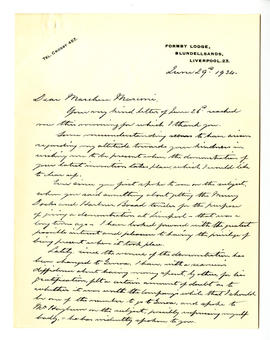 TEL. CROSBY 452.
FORMBY LODGE,
BLUNDELLSANDS,
LIVERPOOL, 23.
June 29th 1934.
Dear Marchese Marconi.
Your very kind letter of June 26th reached
me this morning for which I thank you.
Some misunderstanding seems to have arisen
regarding my attitude towards your kindness in
wishing me to be present when the demonstration of
your latest invention takes place, which I would like
to clear up.
Ever since you first spoke to me on the subject,
when you said something about getting the Mersey
Docks and Harbour Board tender for the purpose
of giving a demonstration at Liverpool - that was a
long time ago - I have looked forward with the greatest
possible interest and pleasure to having the privilege of
being present when it took place.
Lately, since the venue of the demonstration has
been changed to Genoa, I have, with a natural
diffidence about having money spent by others for his
gratification, felt a certain amount of doubt as to
whether it was worth the company's while that I should
be one of the number to go to Genoa, and spoke to
Mr on the subject, possibly expressing myself
badly, & he has evidently spoken to you.